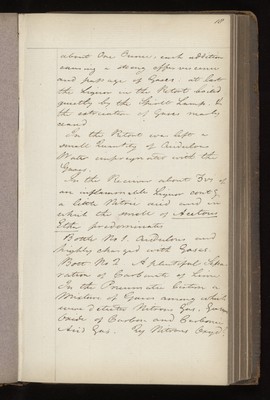 about One Ounce; each addition
causing a strong effervescence
and passage of Gases. at last
the Liquor in the Retort boiled
gently by the Spirit Lamp, &
the extrication of Gases nearly
ceased
In the Retort was left a
small Quantity of Acidulous
Water impregnated with the
Gases.
In the Receiver about
an inflammable Liquor contg
a little Nitric acid and in
which the smell of Acetous
Ether predominates
Bottle No 1. Acidulous and
highly charged with Gases
Bott No 2 A plentiful Sepa
ration of Carbonate of Lime
In the Pneumatic Cistern a
Mixture of Gases among which
were detected Nitrous Gas, Gaseous
Oxide of Carbon and Carbonic
Acid Gas.